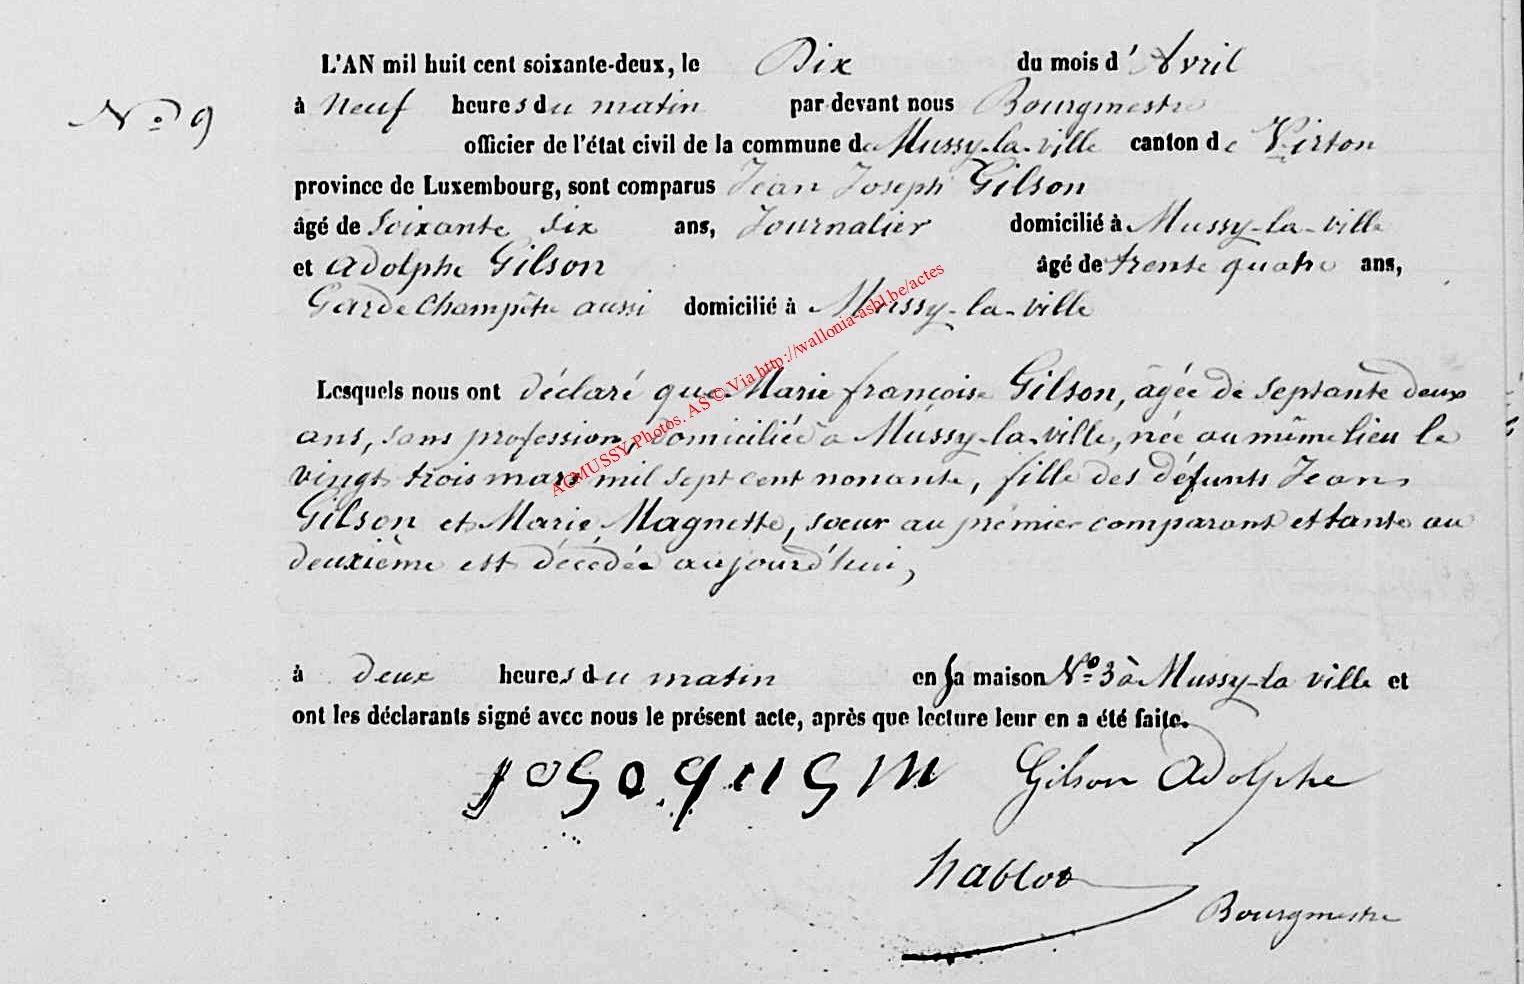 L'AN mil huit cent soixante-deux, le Dix du mois d'Avril
N° 9
à Neuf heures du matin par devant nous Bourgmestre
officier de l'état civil de la commune de Mussy-la-ville canton de Virton
province de Luxembourg, sont comparus Jean Joseph Gilson
âgé de Soixante six ans, Journalier domicilié à Mussy-la-ville
et Adolphe Gilson âgé de trente quatre ans,
Garde Champêtre aussi domicilié à Mussy-la-ville
AGMUSSY Photos. AS © Via http://wallonia-asbl.be/actes
Lesquels nous ont déclaré que Marie françoise Gilson, âgée de septante deux
ans, sans profession, domiciliée à Mussy-la-ville, née au même lieu le
vingt trois mars mil sept cent nonante, fille des défunts Jean
Gilson et Marie Magnette, sœur au premier comparant et tante au
deuxième est décédée aujourd'hui,
à deux heures du matin en sa maison N° 3 à Mussy-la ville et
ont les déclarants signé avec nous le présent acte, après que lecture leur en a été faite.
Gilson Adolphe
Bourgmestre